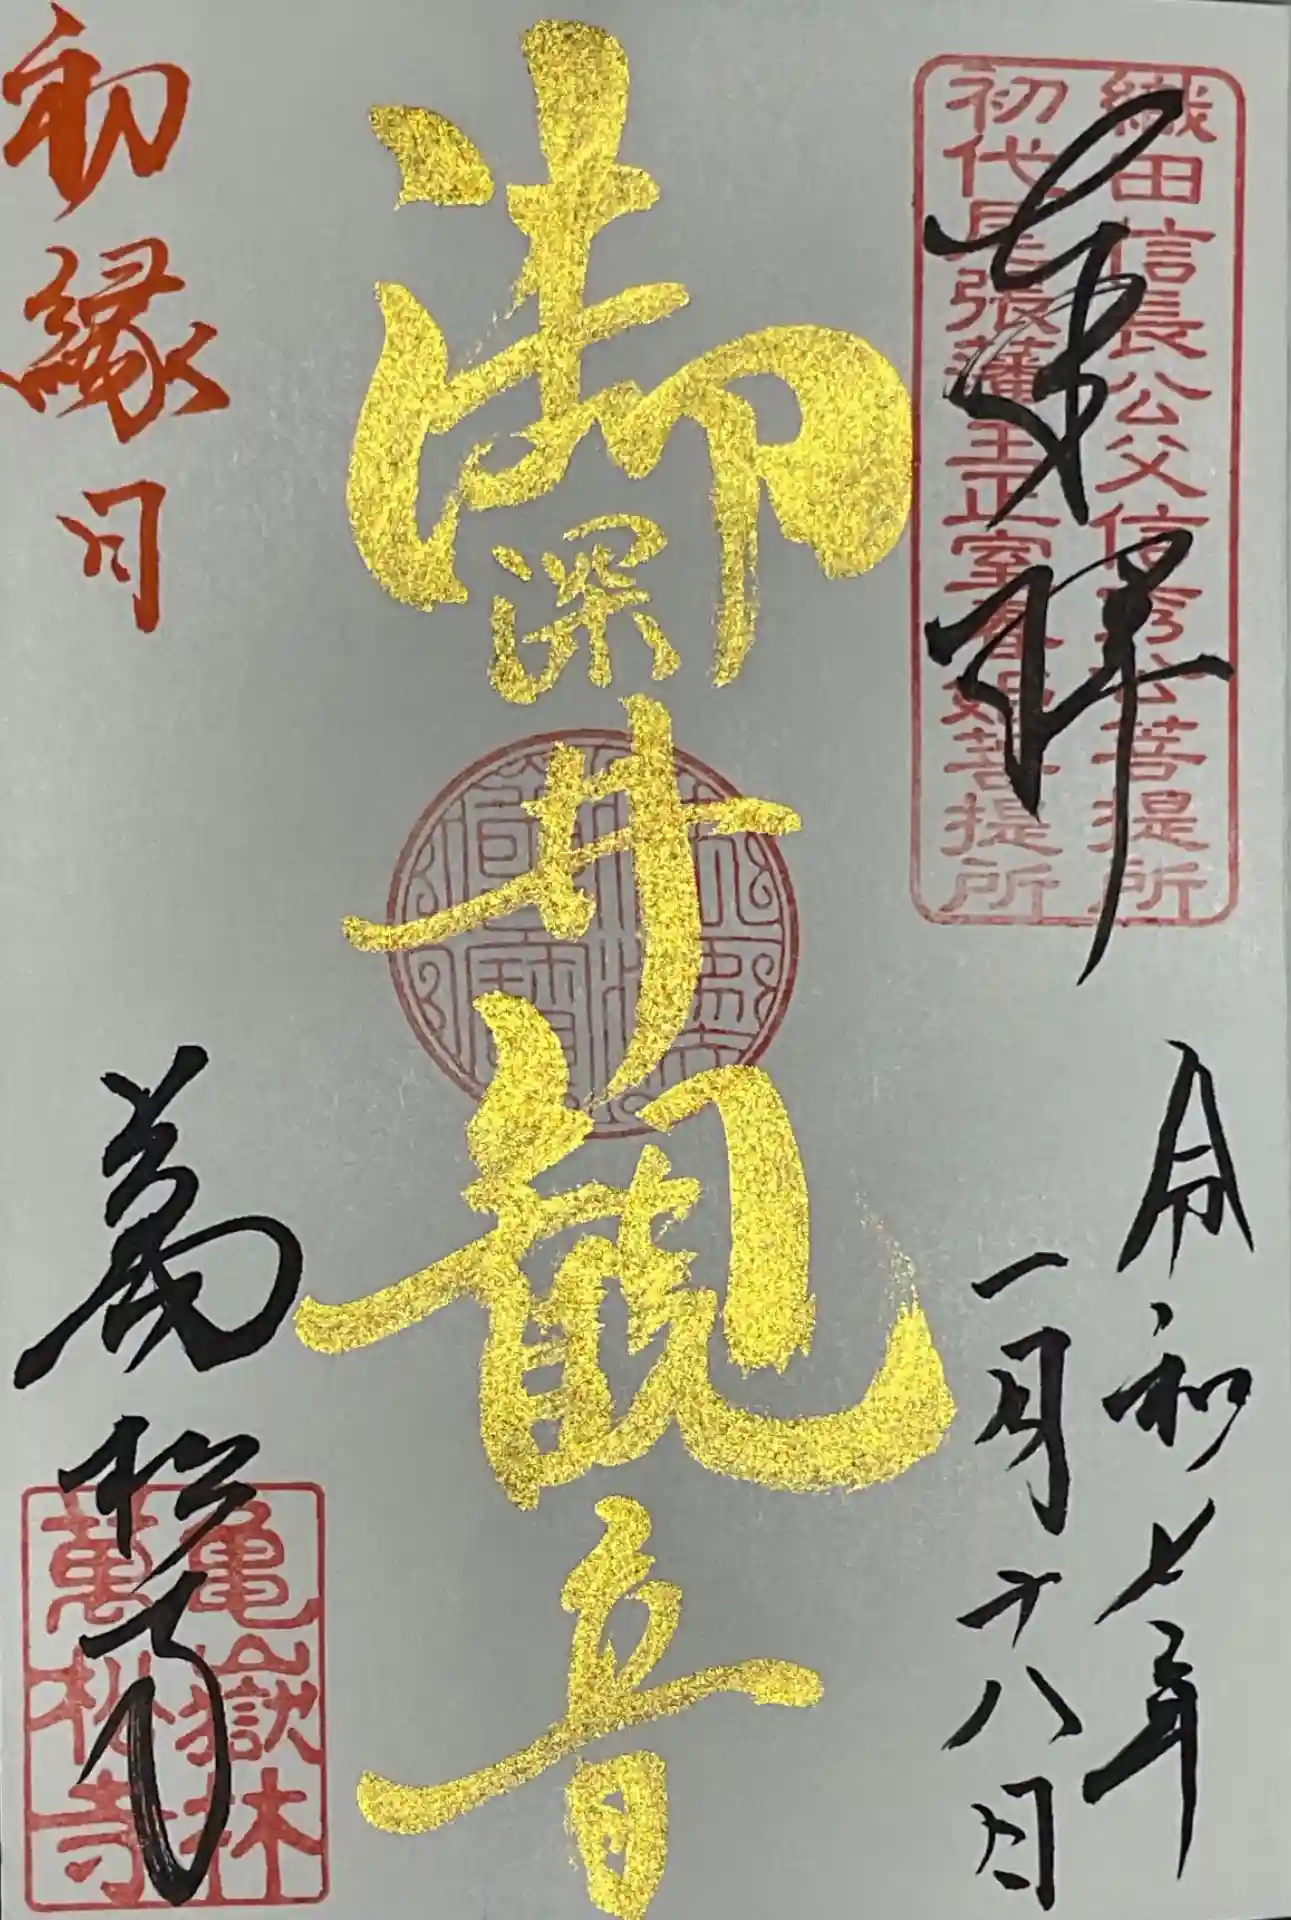 織田信長公父信秀公菩提所
初代尾張藩主正室春姫菩提所
奉拝
令和七年
一月十八日
御深井観音
初縁日
萬松寺
亀嶽林
萬松寺